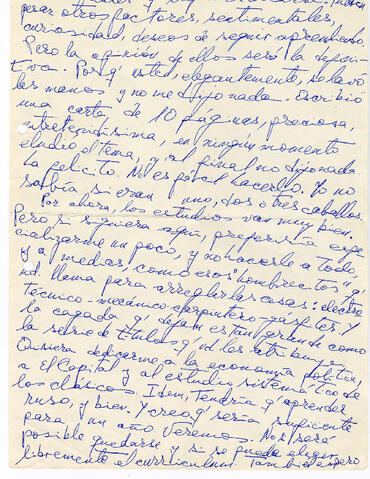 pesar otros factores, sentimentales,
curiosidad, deseos de seguir aprendiendo.
Pero la opinión de ellos será la defini-
tiva. Porq' usted, elegantemente, se lavó
las manos y no me dijo nada. Escribió
una carta de 10 páginas, preciosa,
entretenidísima, en ningún momento
eludió el tema, y al final no dijo nada.
La felicito. No es fácil hacerlo. Yo no
sabía, si eran uno, dos o tres caballos.
Por ahora, los estudios van muy bien.
Pero si siguiera aquí, preferiría espe-
cializarme un poco, y no hacerlo a todo,
y a medias, como esos "hombrecitos" q'
ud. llama para arreglar las cosas: electro
técnico-mecánico-carpintero-gásfiter. Y
la cagada q' dejan es tan grande como
la serie de títulos q' ud les atribuye.
Quisiera dedicarme a la economía política,
a El Capital y al estudio sistemático de
los clásicos. Idem, tendría q' aprender
ruso, y bien. Y creo q' sería suficiente
para un año. Veremos. Nos será
posible quedarse y si se puede elegir
libremente el currículum. También espero